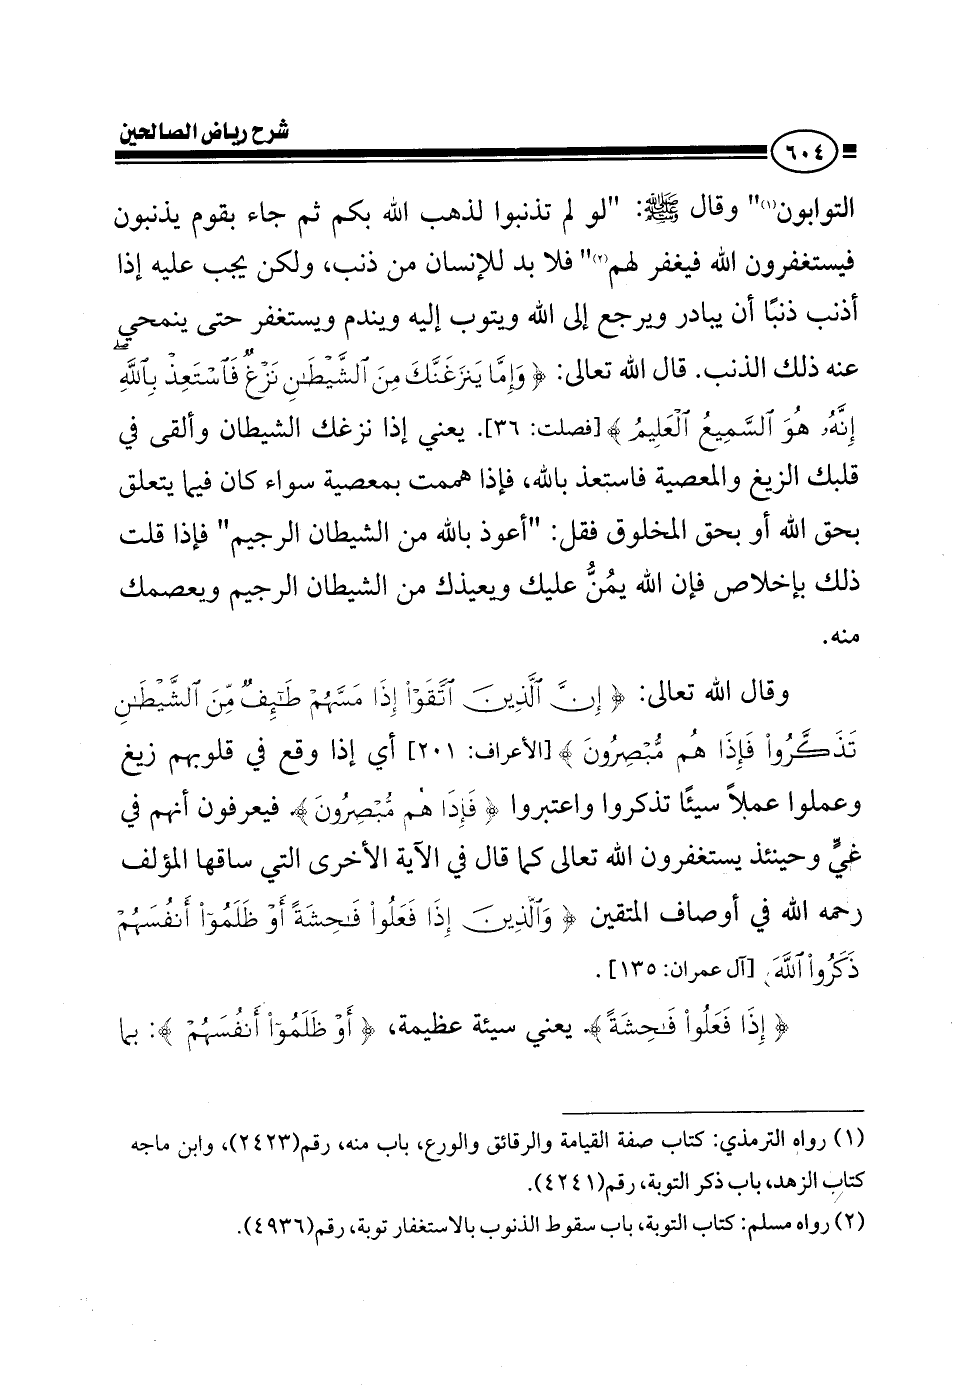 شرح رياض الصالحين
٦٠٤
التوابون(١)" وقال ﷺ: "لو لم تذنبوا لذهب الله بكم ثم جاء بقوم يذنبون
فيستغفرون الله فيغفر لهم(٢)" فلا بد للإنسان من ذنب، ولكن يجب عليه إذا
أذنب ذنبًا أن يبادر ويرجع إلى الله ويتوب إليه ويندم ويستغفر حتى ينمحي
عنه ذلك الذنب. قال الله تعالى: ﴿ وَإِمَّا يَنزَغَنَّكَ مِنَ ٱلشَّيْطَٰنِ نَزْغٌ فَٱسْتَعِذْ بِٱللَّهِۖ
إِنَّهُۥ هُوَ ٱلسَّمِيعُ ٱلْعَلِيمُ ﴾ [فصلت: ٣٦]. يعني إذا نزغك الشيطان وألقى في
قلبك الزيغ والمعصية فاستعذ بالله، فإذا هممت بمعصية سواء كان فيما يتعلق
بحق الله أو بحق المخلوق فقل: "أعوذ بالله من الشيطان الرجيم" فإذا قلت
ذلك بإخلاص فإن الله يمُنُّ عليك ويعيذك من الشيطان الرجيم ويعصمك
منه.
وقال الله تعالى: ﴿ إِنَّ ٱلَّذِينَ ٱتَّقَوْا۟ إِذَا مَسَّهُمْ طَٰٓئِفٌ مِّنَ ٱلشَّيْطَٰنِ
تَذَكَّرُوا۟ فَإِذَا هُم مُّبْصِرُونَ ﴾ [الأعراف: ٢٠١] أي إذا وقع في قلوبهم زيغ
وعملوا عملاً سيئًا تذكروا واعتبروا ﴿ فَإِذَا هُم مُّبْصِرُونَ ﴾. فيعرفون أنهم في
غيٍّ وحينئذ يستغفرون الله تعالى كما قال في الآية الأخرى التي ساقها المؤلف
رحمه الله في أوصاف المتقين ﴿ وَٱلَّذِينَ إِذَا فَعَلُوا۟ فَٰحِشَةً أَوْ ظَلَمُوٓا۟ أَنفُسَهُمْ
ذَكَرُوا۟ ٱللَّهَ ﴾ [آل عمران: ١٣٥] .
﴿ إِذَا فَعَلُوا۟ فَٰحِشَةً ﴾. يعني سيئة عظيمة، ﴿ أَوْ ظَلَمُوٓا۟ أَنفُسَهُمْ ﴾: بما
(١) رواه الترمذي: كتاب صفة القيامة والرقائق والورع، باب منه، رقم(٢٤٢٣)، وابن ماجه
كتاب الزهد، باب ذكر التوبة، رقم(٤٢٤١).
(٢) رواه مسلم: كتاب التوبة، باب سقوط الذنوب بالاستغفار توبة، رقم(٤٩٣٦).